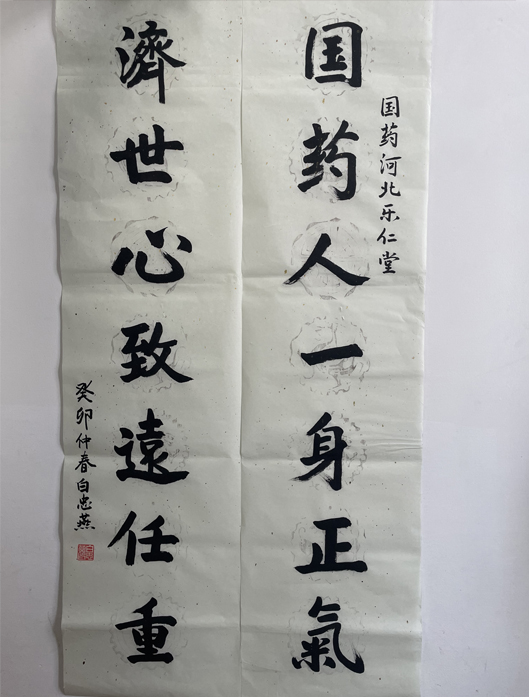 国药河北乐仁堂
国药人一身正氣
濟世心致遠任重
癸卯仲春白忠燕